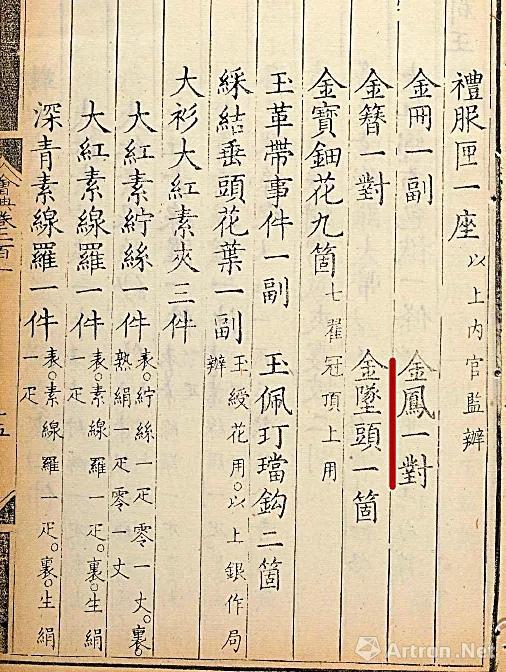 禮服匣一座 以上内官監辦
金冊一副 金鳳一對
金簪一對 金墜頭一箇
金寶鈿花九箇 七翟冠頂上用
玉革帶事件一副 玉佩玎璫鈎二箇
綵結垂頭花葉一副 玉綬花用。以上銀作局辦
大衫大紅素夾三件
大紅素紵絲一件 表。紵絲一疋零一丈。裏。熟絹一疋零一丈
大紅素線羅一件 表。素線羅一疋。裏。生絹一疋
深青素線羅一件 表。素線羅一疋。裏。生絹一疋
會典卷二百一
Artron.Net